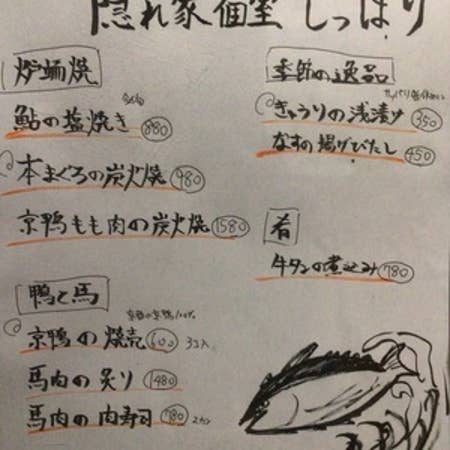 隠れ家個室 しっぽり
炉端焼
鮎の塩焼き 880
本まぐろの炭火焼 980
京鴨もも肉の炭火焼 1580
鴨と馬
京鴨の焼売 600 3コ入
馬肉の炙り 1480
馬肉の肉寿司 780 2カン
季節の逸品
きゅうりの浅漬け 350
なすの揚げびたし 450
肴
牛タンの煮込み 780